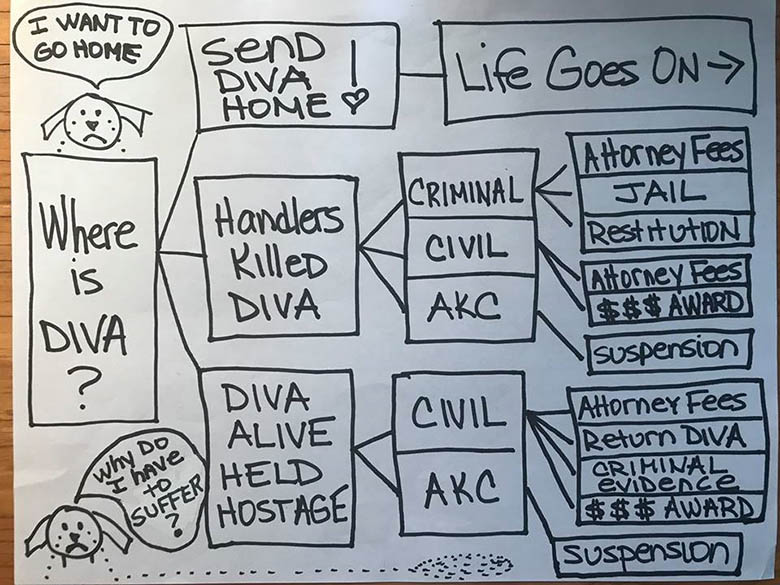 I WANT TO
GO HOME
SenD
DIVA
HOME!
Life Goes ON
Where
is
DIVA
?
Handlers
KilleD
DIVA
CRIMINAL
CIVIL
AKC
Attorney Fees
JAIL
RestitutION
Attorney Fees
$$$ AWARD
suspension
DIVA
ALIVE
HELD
HOSTAGE
CIVIL
AKC
Attorney Fees
Return DIVA
CRIMINAL
evidence
$$$ AWARD
suspension
Why DO
I have
to
SUFFER
?